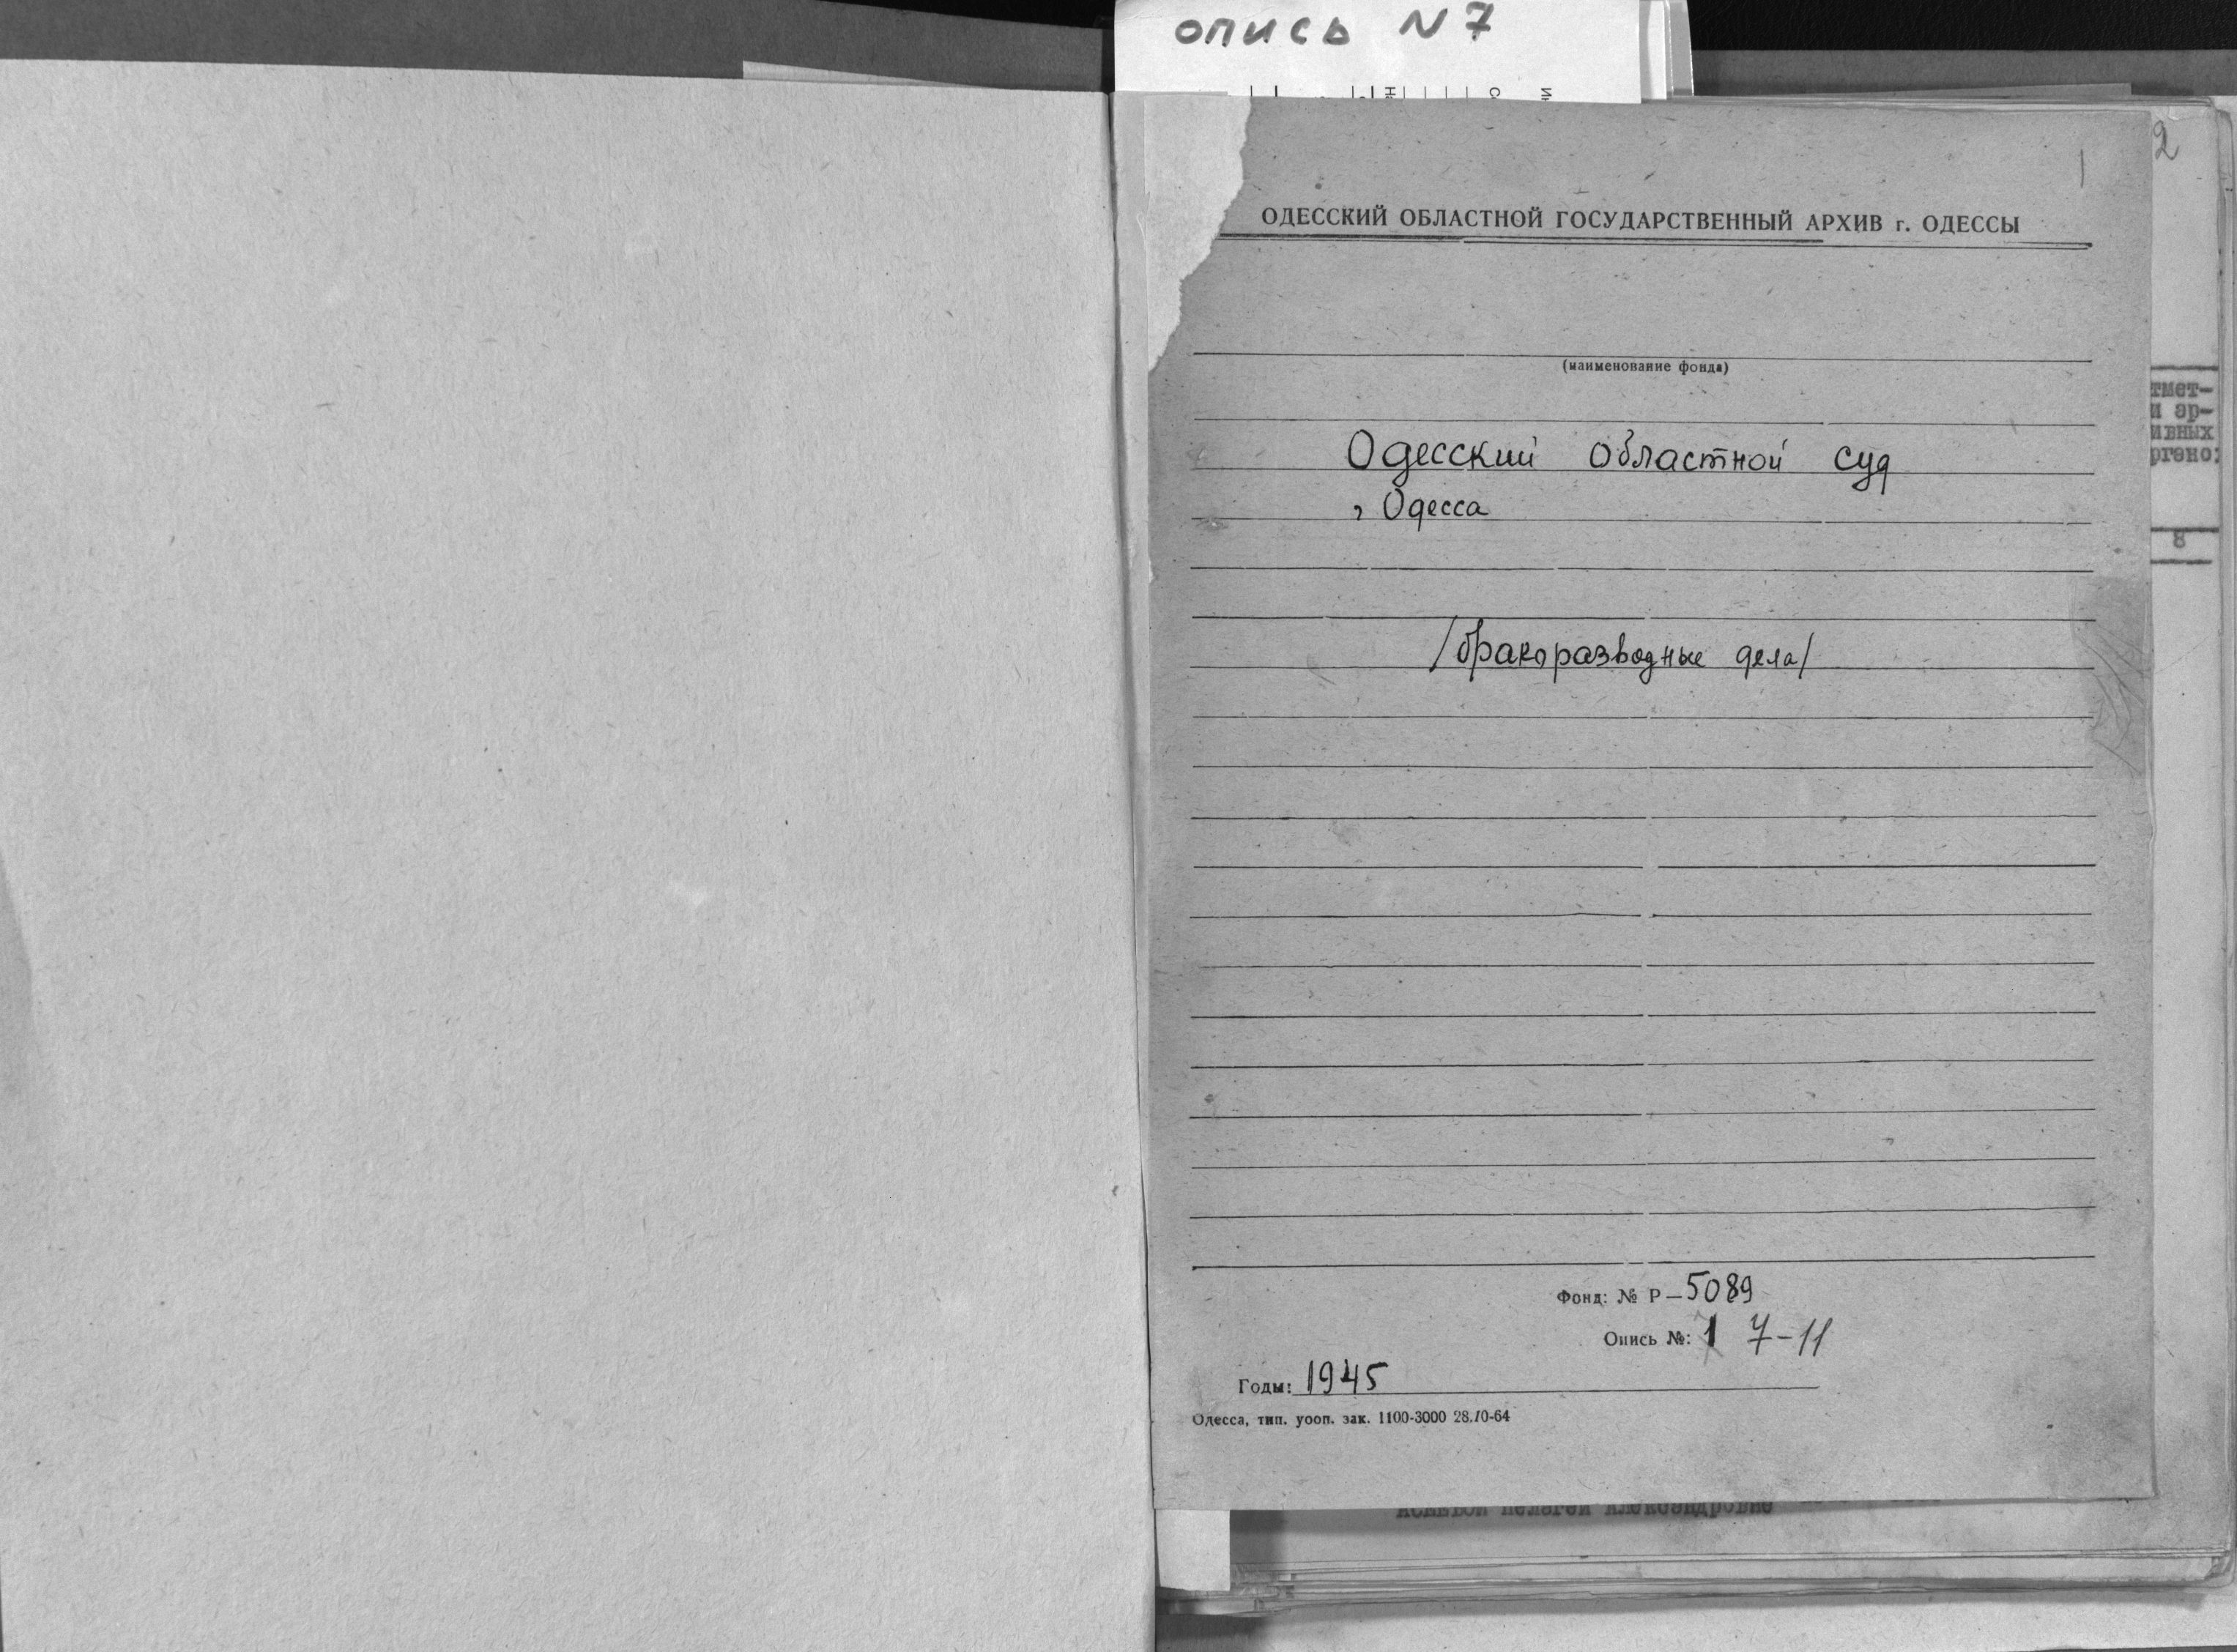 опись N 7
2
1
ОДЕССКИЙ ОБЛАСТНОЙ ГОСУДАРСТВЕННЫЙ АРХИВ г. ОДЕССЫ
(наименование фонда)
тмет-
и ар-
ивных
ргано:
Одесский областной суд
г Одесса
8
/бракоразводные дела/
Фонд: № Р—5089
Опись №: 1 7-11
Годы: 1945
Одесса, тип. уооп. зак. 1100-3000 28.10-64
Пелагеи Александровне